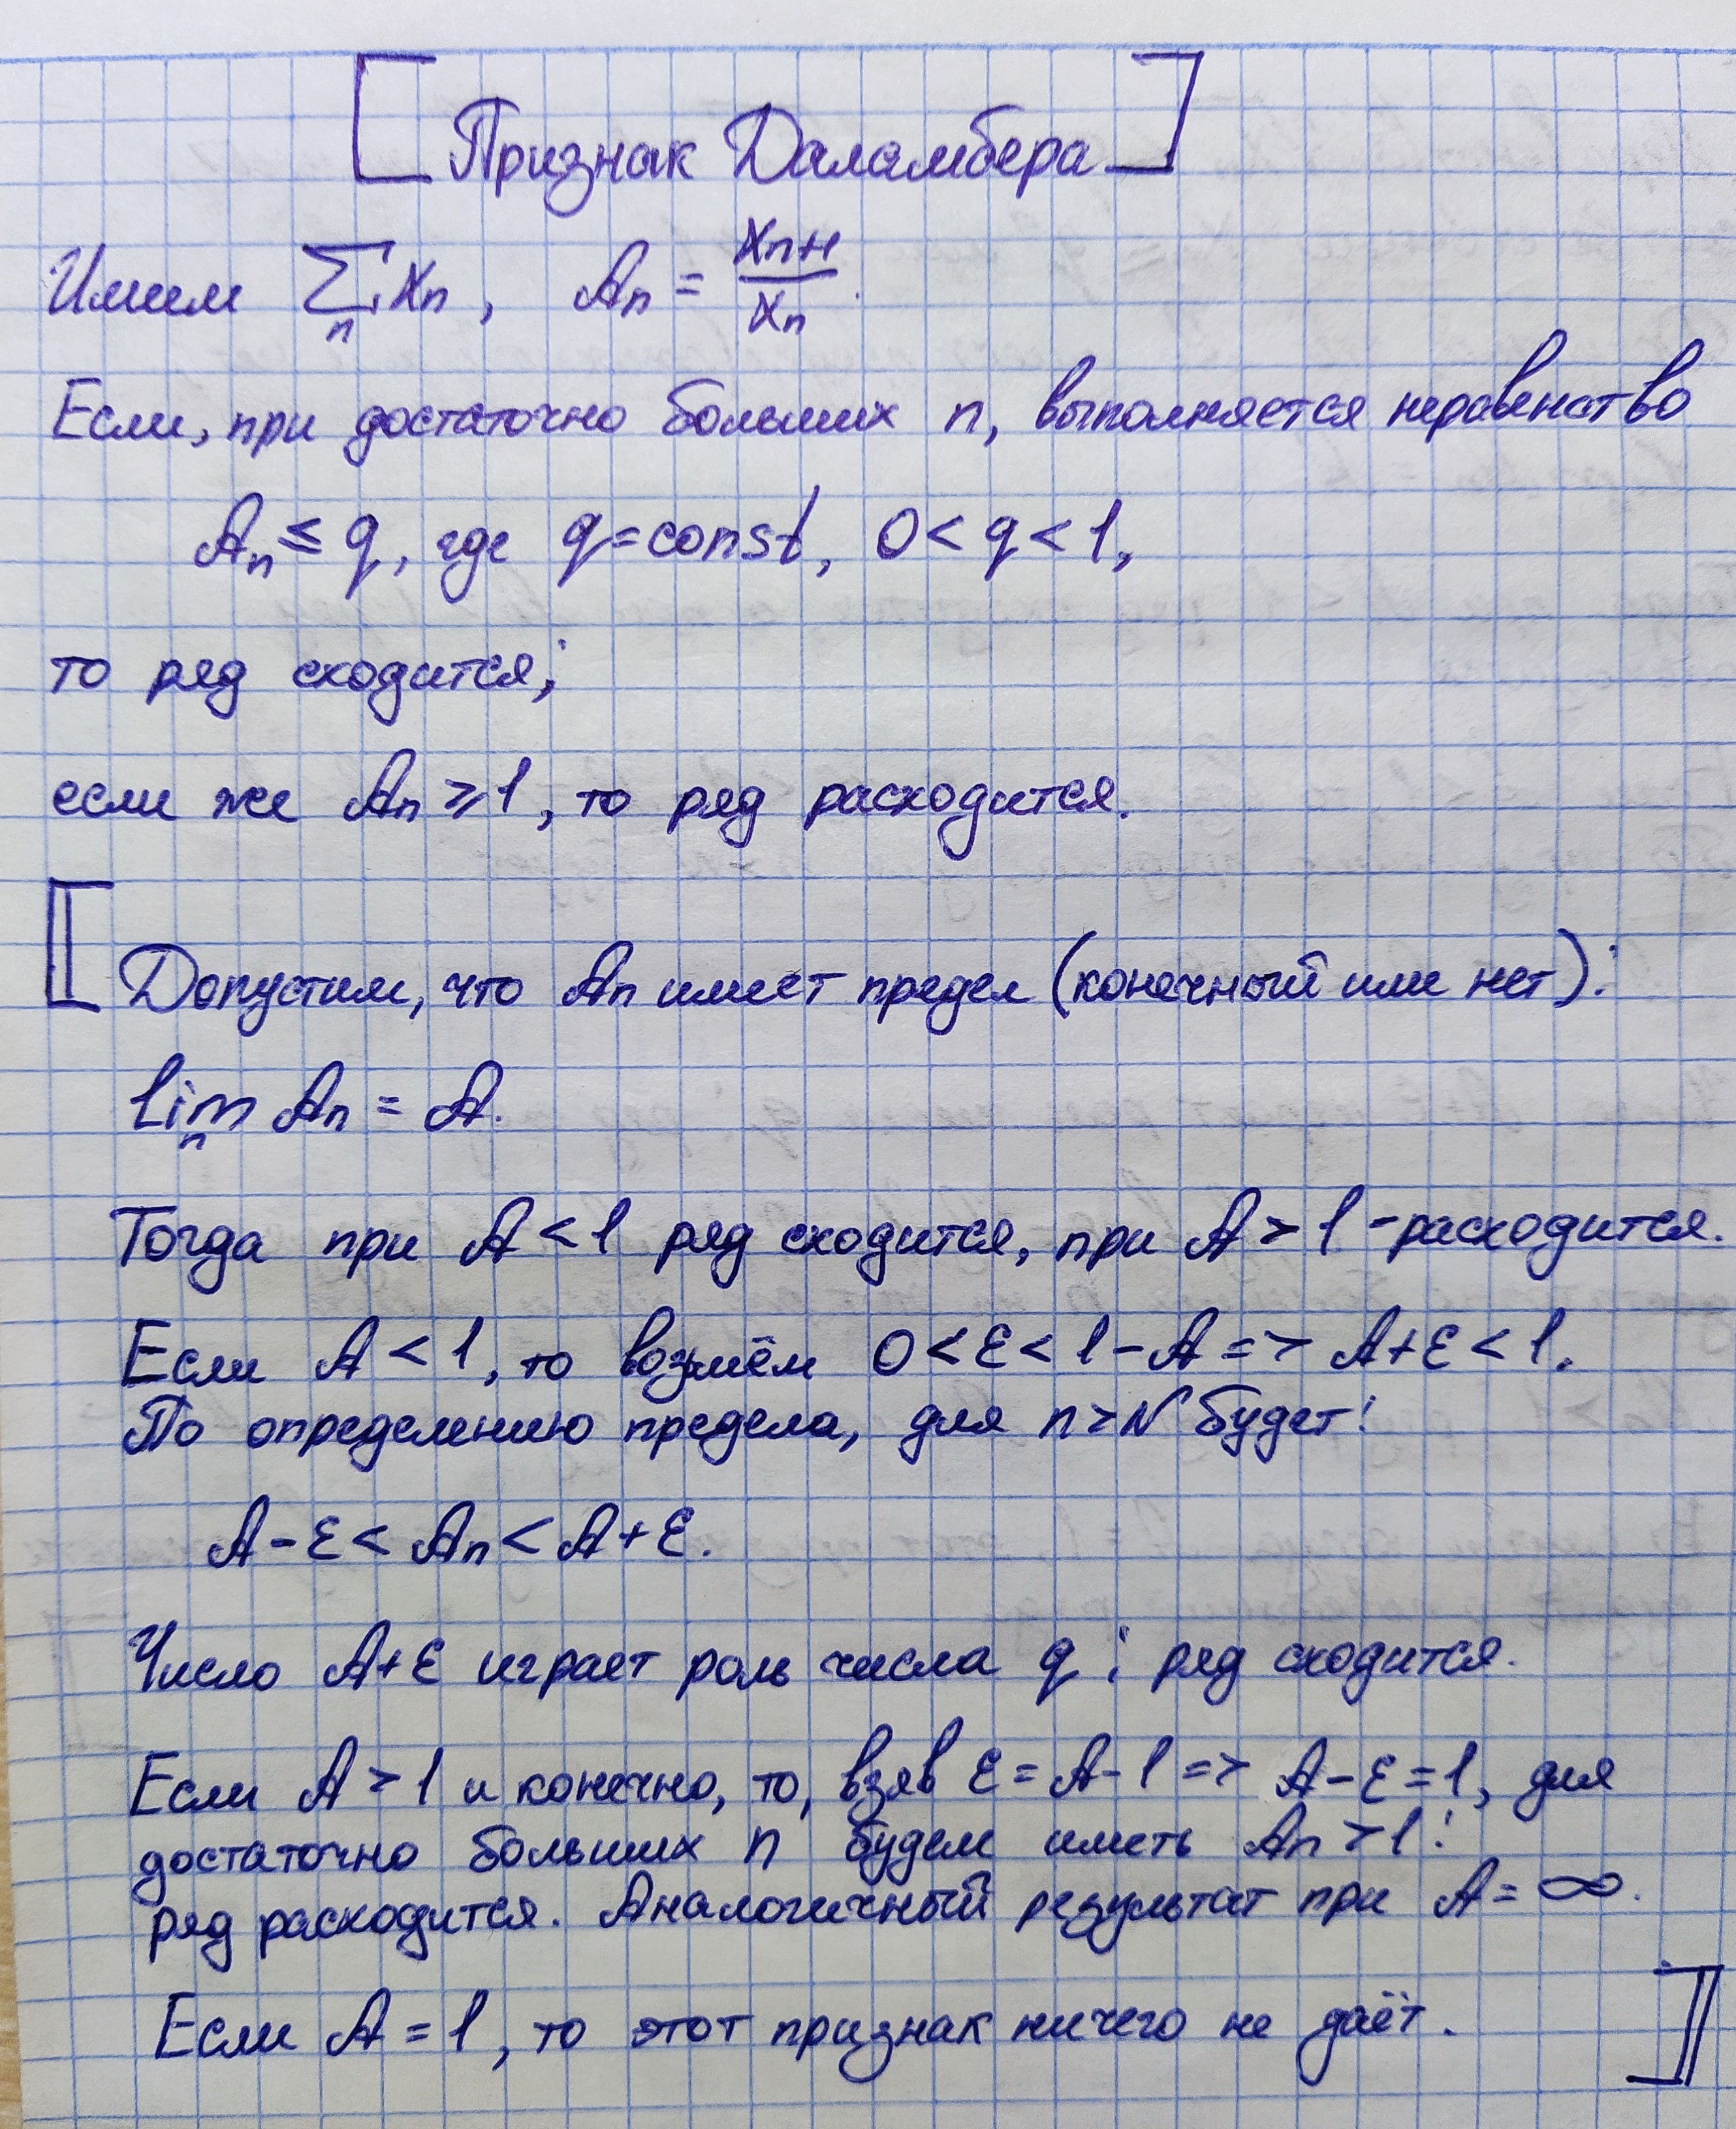 Признак Даламбера
Имеем ∑ₙ xₙ, 𝒜ₙ = xₙ₊₁/xₙ.
Если, при достаточно больших n, выполняется неравенство
𝒜ₙ ≤ q, где q=const, 0 < q < 1,
то ряд сходится;
если же 𝒜ₙ ⩾ 1, то ряд расходится.
Допустим, что 𝒜ₙ имеет предел (конечный или нет):
limₙ 𝒜ₙ = 𝒜.
Тогда при 𝒜 < 1 ряд сходится, при 𝒜 > 1 - расходится.
Если 𝒜 < 1, то возмём 0 < ε < 1 - 𝒜 => 𝒜 + ε < 1.
По определению предела, для n > N будет:
𝒜 - ε < 𝒜ₙ < 𝒜 + ε.
Число 𝒜 + ε играет роль числа q: ряд сходится.
Если 𝒜 > 1 и конечно, то, взяв ε = 𝒜 - 1 => 𝒜 - ε = 1, для
достаточно больших n будем иметь 𝒜ₙ > 1:
ряд расходится. Аналогичный результат при 𝒜 = ∞.
Если 𝒜 = 1, то этот признак ничего не даёт.